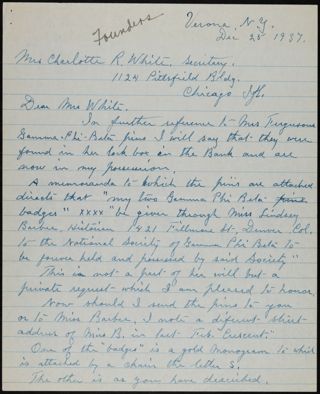 Founders
Verona, N.Y.
Dec 25 1937.
Mrs Charlotte R. White, Secretary.
1124 Pittsfield Bldg.
Chicago Ill.
Dear Mrs White.
In further reference to Mrs Fergusons
Gamma-Phi-Beta pins I will say that they were
found in her lock box in the Bank and are
now in my possession.
A memoranda to which the pins are attached
directs that "my two Gamma Phi Beta pins
badges" xxxx "be given through Miss Lindsey
Barbee, Historian, 1421 Fillmore St, Denver, Col.
to the National Society of Gamma Phi Beta to
be forever held and possessed by said Society"
This is not a part of her will but a
private request which I am pleased to honor.
Now should I send the pins to you
or to Miss Barbee, I note a diferent street
address of Miss B. in last Feb. Crescent."
One of the "badges" is a gold Monogram to which
is attached by a chain the letter S'.
The other is as you have described.